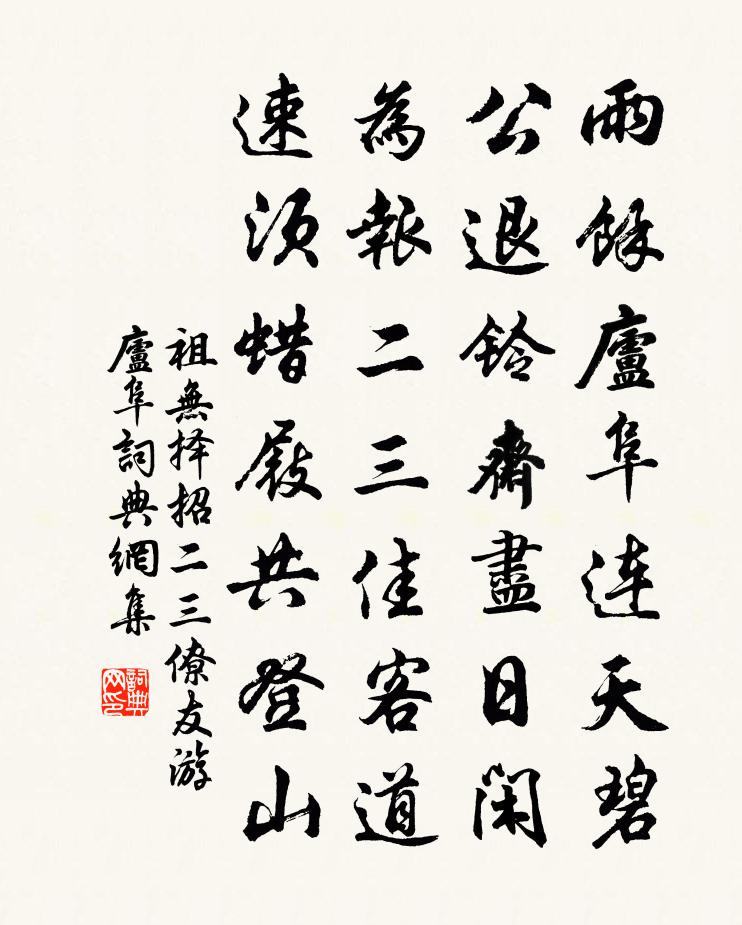 雨餘廬阜连天碧
公退鈴齋盡日閑
為報二三佳客道
速須蜡屐共登山
祖無择招二三僚友游
廬阜詞典網集
詞典网印